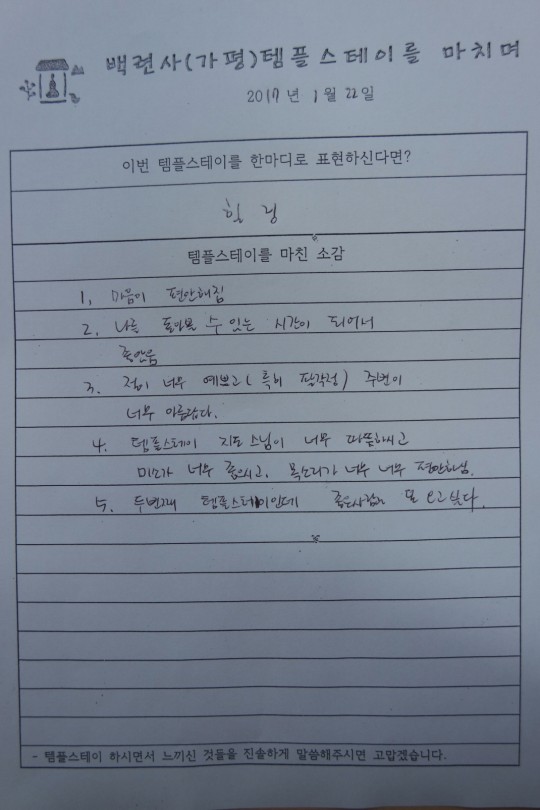 백련사(가평)템플스테이를 마치며
2017년 1월 22일
이번 템플스테이를 한마디로 표현하신다면?
힐링
템플스테이를 마친 소감
1. 마음이 편안해짐
2. 나를 돌아볼 수 있는 시간이 되어서
좋았음
3. 절이 너무 예쁘고(특히 팔각정) 주변이
너무 아름답다.
4. 템플스테이 지도스님이 너무 따뜻하시고
미소가 너무 좋으시고, 목소리가 너무 너무 편안하심.
5. 두번째 템플스테이인데 좋은사람과 또 오고싶다.
- 템플스테이 하시면서 느끼신 것들을 진솔하게 말씀해주시면 고맙겠습니다.